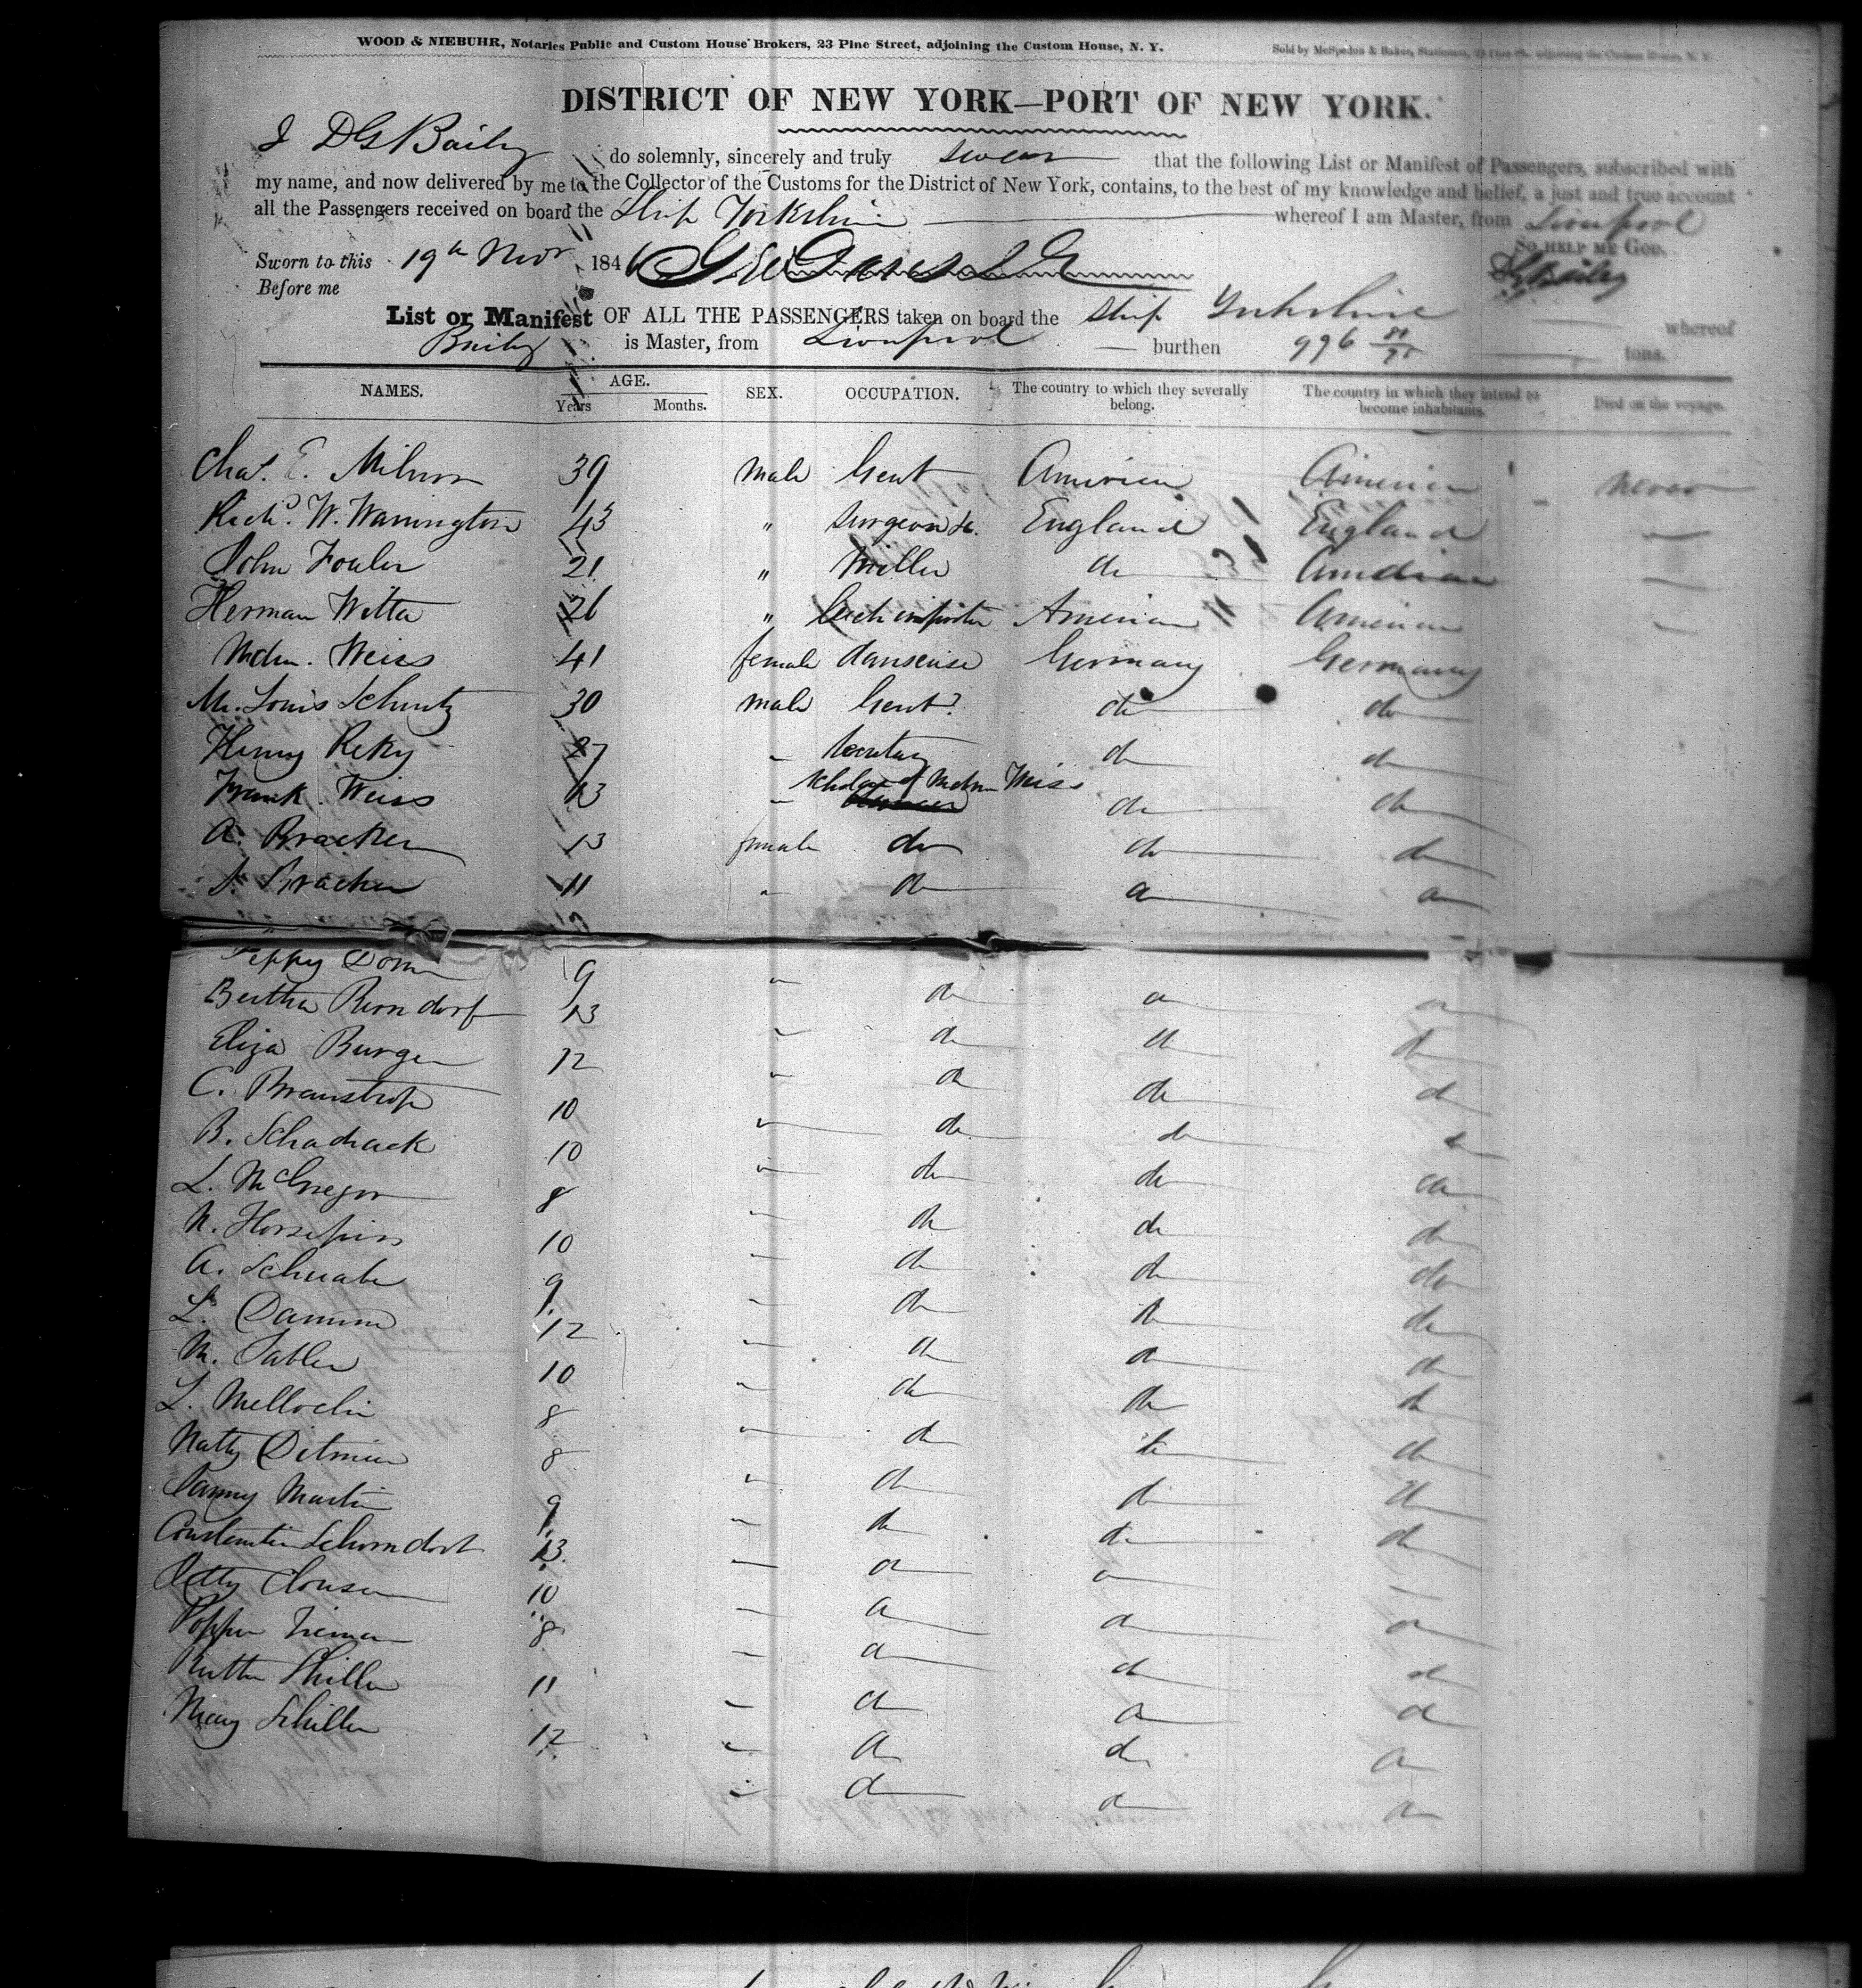 WOOD & NIEBUHR, Notaries Public and Custom House Brokers, 23 Pine Street, adjoining the Custom House, N. Y. Sold by McSpedon & Baker, Stationers, 23 Pine St., adjoining the Custom House, N. Y.
DISTRICT OF NEW YORK—PORT OF NEW YORK.
I D G Baily do solemnly, sincerely and truly swear that the following List or Manifest of Passengers, subscribed with
my name, and now delivered by me to the Collector of the Customs for the District of New York, contains, to the best of my knowledge and belief, a just and true account
all the Passengers received on board the Ship Yorkshire whereof I am Master, from Liverpool
SO HELP ME GOD.
Sworn to this 19th Nov 1846 D G Bailey
Before me
List or Manifest OF ALL THE PASSENGERS taken on board the Ship Yorkshire whereof
Baily is Master, from Liverpool burthen 996 tons.
NAMES. AGE. SEX. OCCUPATION. The country to which they severally belong. The country in which they intend to become inhabitants. Died on the voyage.
Years Months.
Chas. E. Milnor 39 male Gent America America never
Richd. W. Warrington 43 " Surgeon &c. England England
John Fowler 21 " Miller do Canada
Herman Witta 26 " America America
Mdm. Weiss 41 female danseuse Germany Germany
Mr. Louis Schultz 30 male Gent. do do
Henry Reky 27 " Secretary do do
Frank Weiss 13 " Scholar of Mdm Weiss do do
A. Bracken 13 female do do do
Bracken 11 " do do do
Peppy Dorn 9 " do do do
Bertha Burndorf 13 " do do do
Eliza Burger 12 " do do do
C. Braunstrop 10 " do do do
B. Schadrack 10 " do do do
L. McGregor 8 " do do do
N. 10 " do do do
A. Schwabe 9 " do do do
L. Damm 12 " do do do
M. Sabler 10 " do do do
L. 8 " do do do
Natty Ditmier 8 " do do do
Fanny Martin 9 " do do do
Constantin Schorndorf 13 " do do
Netty Clousen 10 " do do do
8 " do do do
Schiller 11 " do do do
Mary Schiller 12 " do do do